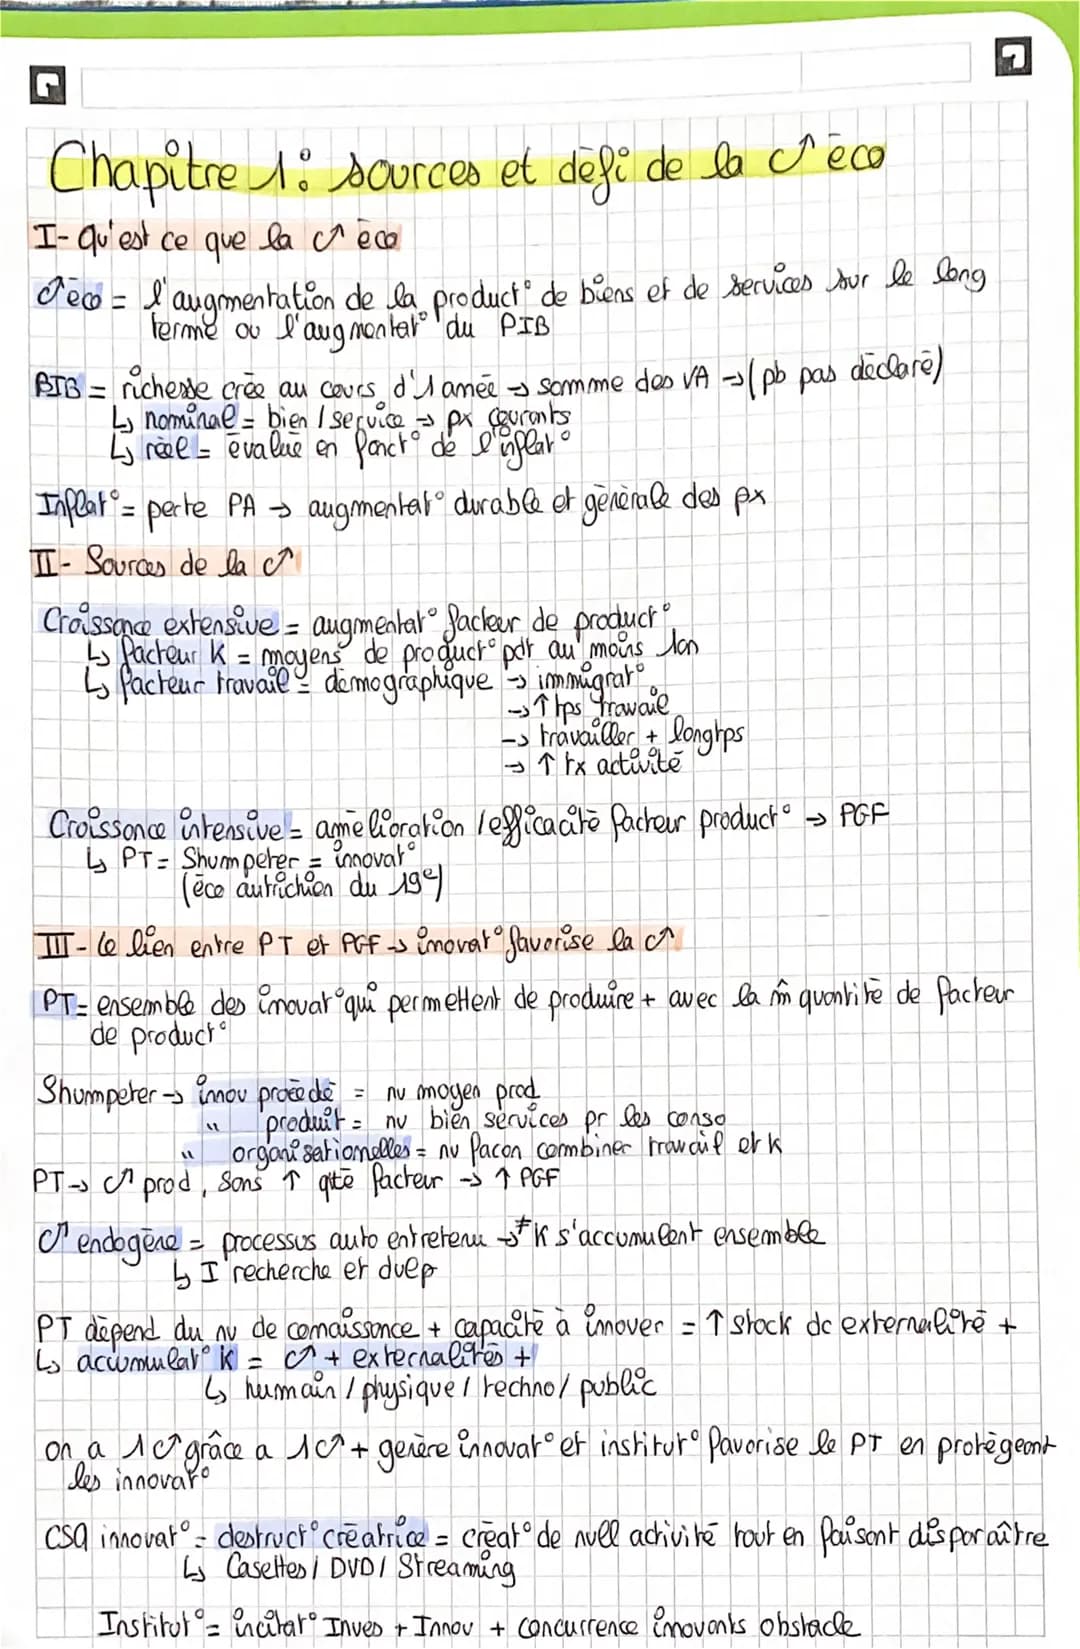 Chapître 1: sources et défi de la C↗ éco
I- qu'est ce que la C↗ éco
C↗ éco = l'augmentation de la product° de biens et de services sur le long
terme ou l'augmentat° du PIB
PIB = richesse crée au cours d'1 année → somme des VA → (pb pas déclaré)
↳ nominal = bien / service → px courants
↳ réel = évalué en fonct° de l'inflat°
Inflat° = perte PA → augmentat° durable et générale des px
II- Sources de la C↗
Croissance extensive = augmentat° facteur de product°
↳ facteur K = moyens de product° pdt au moins 1an
↳ facteur travail = démographique → immigrat°
→ ↑ tps travail
→ travailler + longtps
→ ↑ tx activité
Croissance intensive = amélioration / efficacité facteur product° → PGF
↳ PT = Shumpeter = innovat°
(éco autrichien du 19e)
III- le lien entre PT et PGF → innovat° favorise la C↗
PT = ensemble des innovat° qui permettent de produire + avec la m̂ quantité de facteur
de product°
Shumpeter → innov procédé = nv moyen prod
" produit = nv bien services pr les conso
" organisationnelles = nv façon combiner travail et K
PT → C↗ prod, sans ↑ qité facteur → ↑ PGF
C↗ endogène = processus auto entretenu → ≠ K s'accumulent ensemble
↳ I recherche et dvep
PT dépend du nv de connaissance + capacité à innover = ↑ stock dc externalité +
↳ accumulat° K = C↗ + externalités +
↳ humain / physique / techno / public
on a 1 C↗ grâce a 1 C↗ + génère innovat° et institut° favorise le PT en protégeant
les innovat°
CSQ innovat° = destruct° créatrice = créat° de nvell activité tout en faisant disparaître
↳ Casettes / DVD / Streaming
Institut° = incitat° Inves + Innov + concurrence innovants obstacle